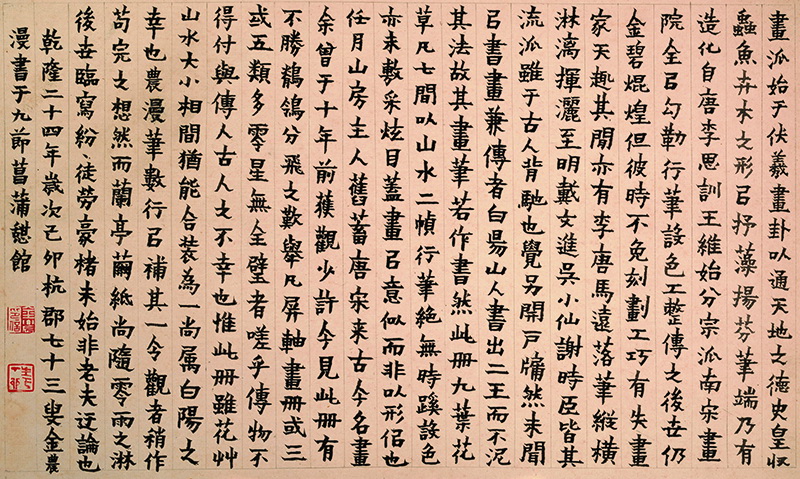 畫派始于伏羲畫卦以通天地之德史皇收
蟲魚卉木之形㠯抒藻揚芬筆端乃有
造化自唐李思訓王維始分宗派南宋畫
院全㠯勾勒行筆設色工整傳之後世仍
金碧焜煌但彼時不免刻劃工巧有失畫
家天趣其閒亦有李唐馬遠落筆縱橫
淋漓揮灑至明戴文進吳小仙謝時臣皆其
流派雖于古人背馳也覺另開戶牖然未聞
㠯書畫兼傳者白昜山人書出二王而不泥
其法故其畫筆若作書然此冊九葉花
草凡七間以山水二幀行筆絕無時蹊設色
亦未敷采炫目蓋畫㠯意似而非以形佀也
任月山房主人舊蓄唐宋来古今名畫
余曾于十年前獲觀少許今見此冊有
不勝鶺鴒分飛之歎舉凡屏軸畫冊或三
或五類多零星無全璧者嗟乎傳物不
得付與傳人古人之不幸也惟此冊雖花艸
山水大小相間猶能合裝為一尚属白陽之
幸也農漫筆數行㠯補其一令觀者稍作
苟完之想然而蘭亭繭紙尚隨零雨之淋
後世臨寫紛〻徒勞豪楮未始非老夫迂論也
乾隆二十四年歲次己卯杭郡七十三叟金農
漫書于九節菖蒲憇館